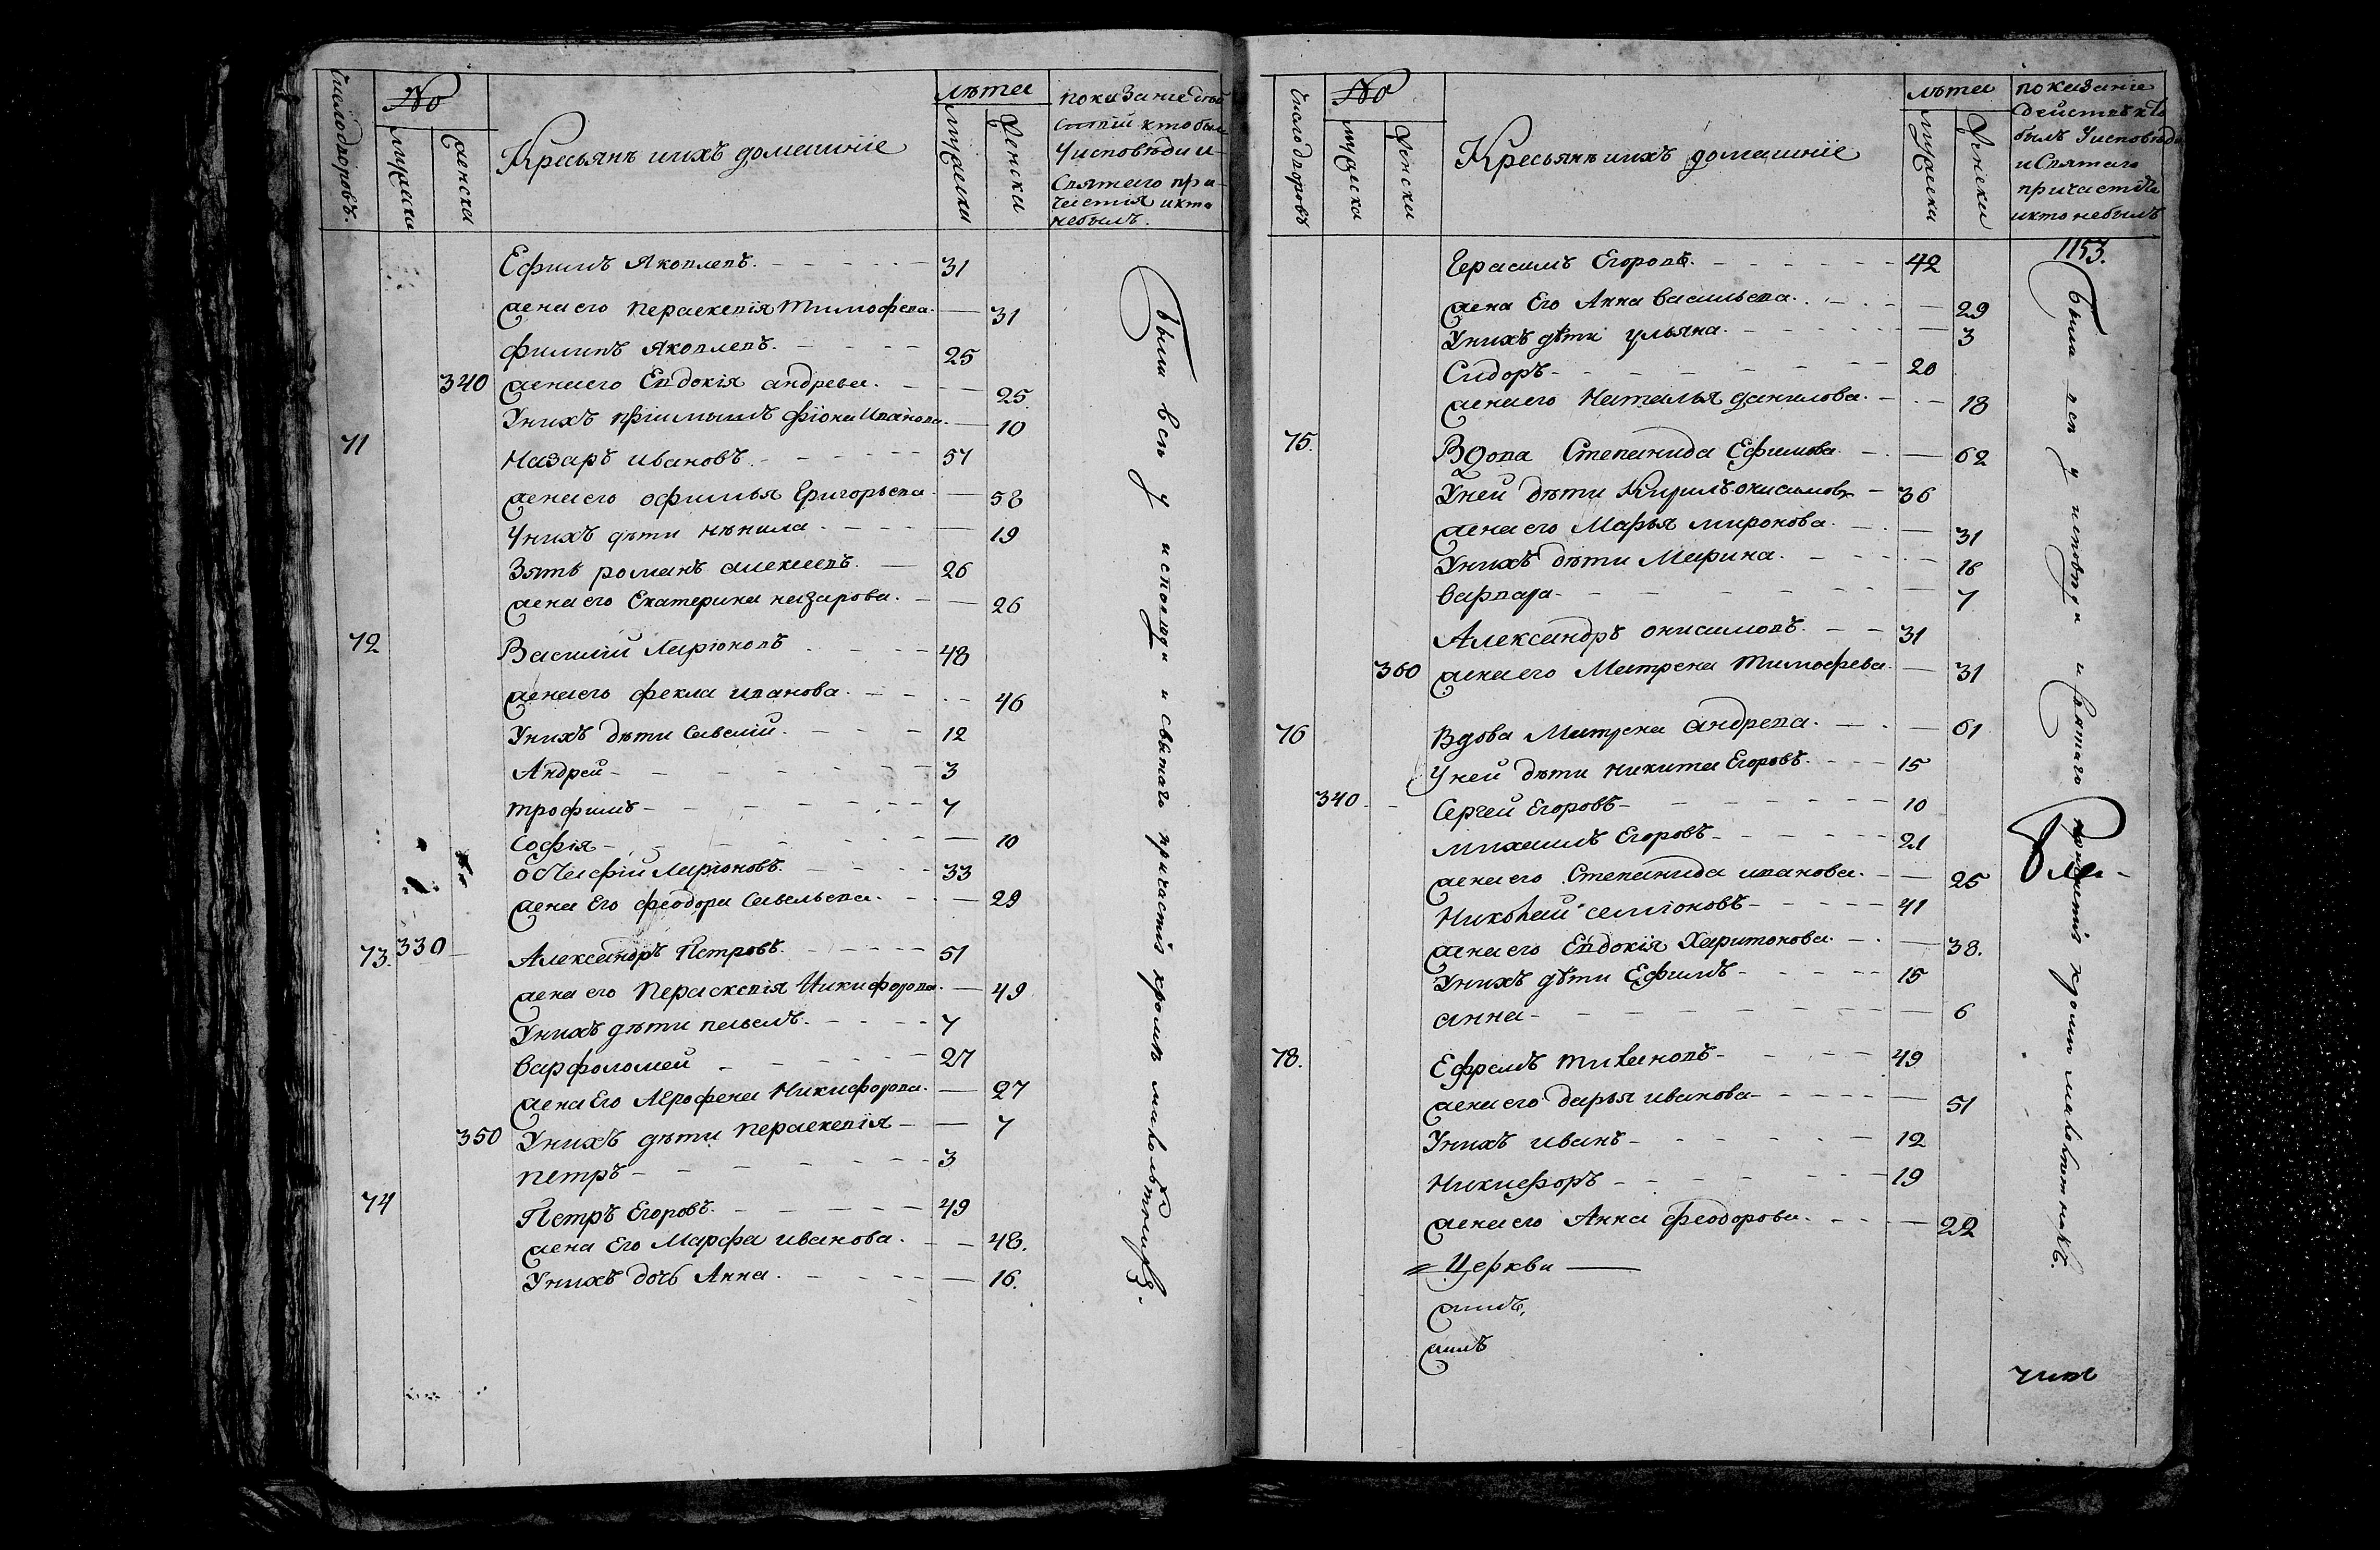 число дворовъ.
№
мужска
женска
Крестьянъ и ихъ домашніе
лѣта
мужеска
женска
показание дѣй
ствій кто был
У исповѣди и
Святаго при-
частія и кто
небылъ.
Ефимъ Яковлевъ. 31
жена его Пераскевія Тимофева. 31
Филипъ Яковлевъ. 25
340 жена его Евдокія андрева. 25
У нихъ пріимышъ Фіона Иванова. 10
71 Назаръ ивановъ. 57
жена его офимья Григорьева. 58
У нихъ дѣти Ненила. 19
Зять романъ алексеевъ. 26
жена его Екатерина назарова. 26
72 Василій Ларіоновъ 48
жена его фекла иванова. 46
У нихъ дѣти Савелій. 12
Андрей 3
трофимъ 7
Софія 10
Ларіоновъ. 33
жена Его феодора Савельева. 29
73. 330 Александръ Петровъ. 51
жена его Пераскевія Никифорова. 49
У нихъ дѣти павелъ. 7
Варфоломей 27
жена Его Никифорова. 27
350 У нихъ дѣти Пераскевія 7
петръ 3
74 Петръ Егоровъ. 49
жена Его Марфа иванова. 48.
У нихъ дочь Анна. 16.
были всѣ у исповѣди и святаго причастія кромѣ малолѣтнихъ.
число дворовъ
№
мужеска
женски
Крестьянъ и ихъ домашніе
лѣта
мужеска
женски
показаніе
действъ кто
былъ У исповѣди
и Святаго
причастія
и кто небылъ
1153.
Герасимъ Егоровъ. 42
жена Его Анна васильева. 29
У нихъ дѣти ульяна. 3
Сидоръ 20
жена его Наталья данилова. 18
75. Вдова Степанида Ефимова. 62
У ней дѣти Кирилъ онисимовъ 36
жена его Марья миронова. 31
У нихъ дѣти Марина. 16
варвара 7
Александръ онисимовъ. 31
360 жена его Матрена Тимофева. 31
76 Вдова Матрена андрева. 61
У ней дѣти никита Егоровъ. 15
340 Сергей Егоровъ 10
михаилъ Егоровъ 21
жена его Степанида иванова. 25
Николай семіоновъ 41
жена его Евдокія Харитонова. 38.
У нихъ дѣти Ефимъ 15
анна 6
78. Ефремъ 49
жена его дарья иванова 51
У нихъ иванъ 12
Никифоръ 19
жена его Анна феодорова. 22
Церкви
была вси у исповѣди и святаго причастія кроми малолѣтнихъ.